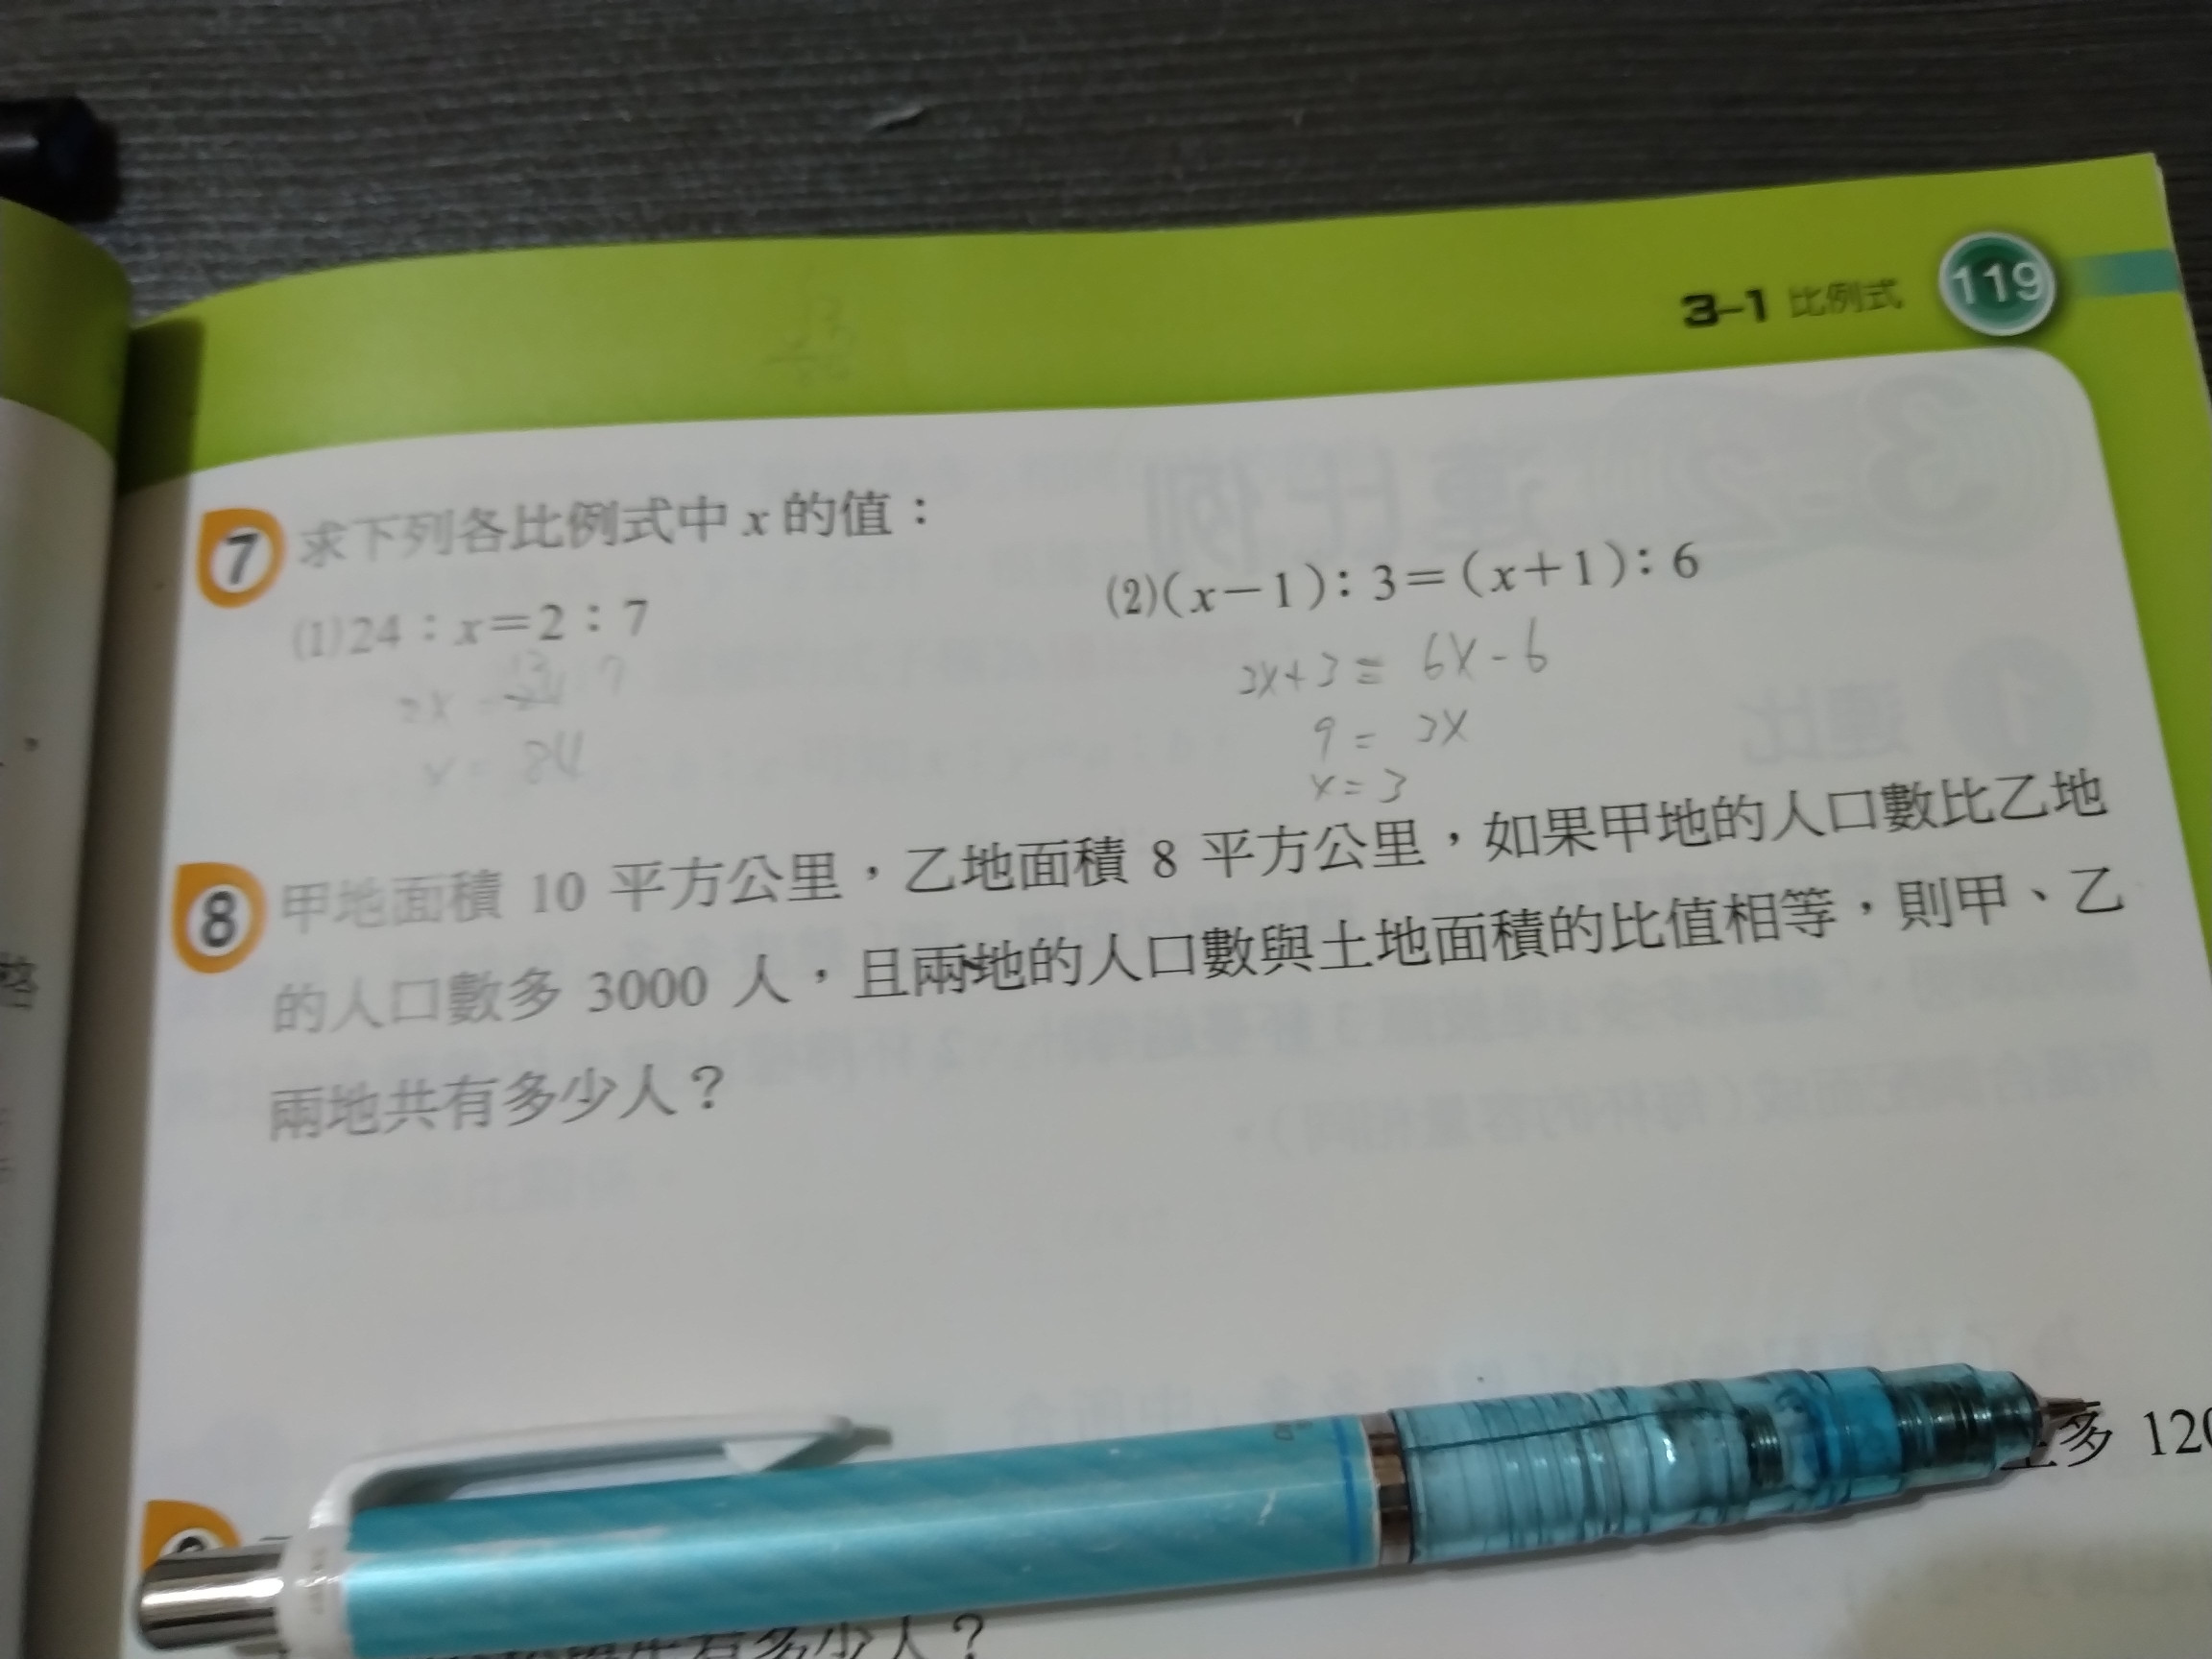 3-1 比例式 119
7 求下列各比例式中 x 的值：
(1)24：x＝2：7
(2)(x－1)：3＝(x＋1)：6
x = 84
3x+3 = 6x-6
9 = 3x
x = 3
8 甲地面積 10 平方公里，乙地面積 8 平方公里，如果甲地的人口數比乙地
的人口數多 3000 人，且兩地的人口數與土地面積的比值相等，則甲、乙
兩地共有多少人？
多 120
多少人？